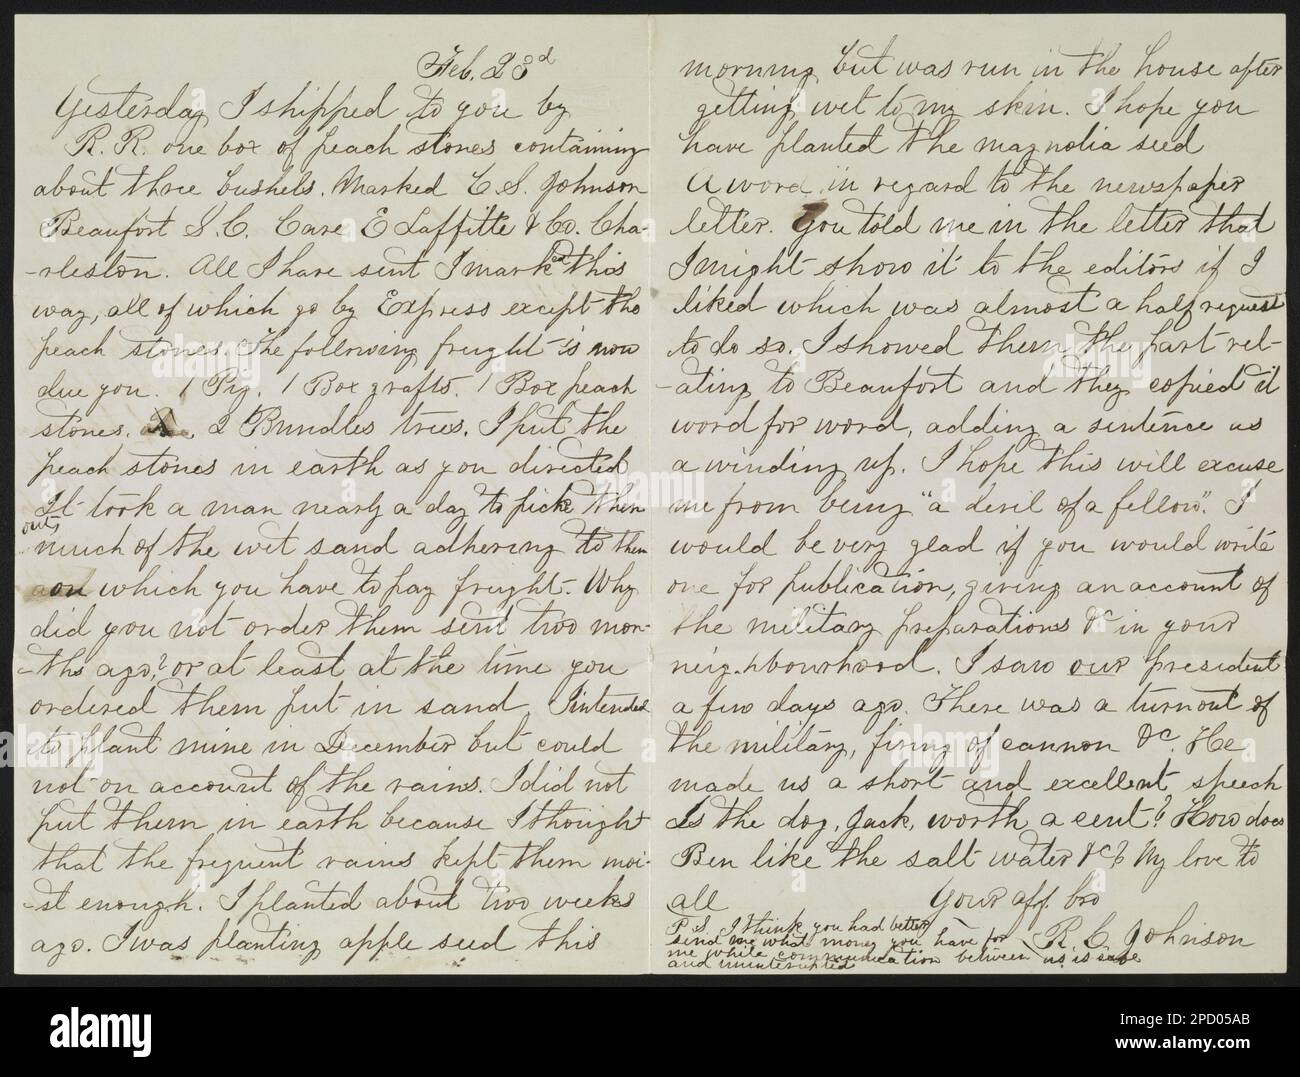 Feb. 23d
Yesterday I shipped to you by
R. R. one box of peach stones containing
about three bushels. Marked C. S. Johnson
Beaufort S. C. Care E Laffitte & Co. Cha-
-rleston. All I have sent I marked this
way, all of which go by Express except the
peach stones. The following freight is now
due you. 1 Pig. 1 Box grafts. 1 Box peach
stones. 2 Bundles trees. I put the
peach stones in earth as you directed
It took a man nearly a day to pick them
out,
much of the wet sand adhering to them
on which you have to pay freight. Why
did you not order them sent two mon-
-ths ago? or at least at the time you
ordered them put in sand. I intended
to plant mine in December but could
not on account of the rains. I did not
put them in earth because I thought
that the frequent rains kept them moi-
-st enough. I planted about two weeks
ago. I was planting apple seed this
morning but was run in the house after
getting wet to my skin. I hope you
have planted the magnolia seed
A word in regard to the newspaper
letter. You told me in the letter that
I might show it to the editors if I
liked which was almost a half request
to do so. I showed them the part rel-
-ating to Beaufort and they copied it
word for word, adding a sentence as
a winding up. I hope this will excuse
me from being "a devil of a fellow". I
would be very glad if you would write
one for publication, giving an account of
the military preparations &c in your
neighbourhood. I saw our president
a few days ago. There was a turnout of
the military, firing of cannon &c. He
made us a short and excellent speech
Is the dog, Jack, worth a cent? How does
Ben like the salt water &c? My love to
all
Your aff. bro
R. C. Johnson
P. S. I think you had better
send me what money you have for
me while communication between us is safe
and uninterrupted
alamy
Image ID: 2PD05AB
www.alamy.com